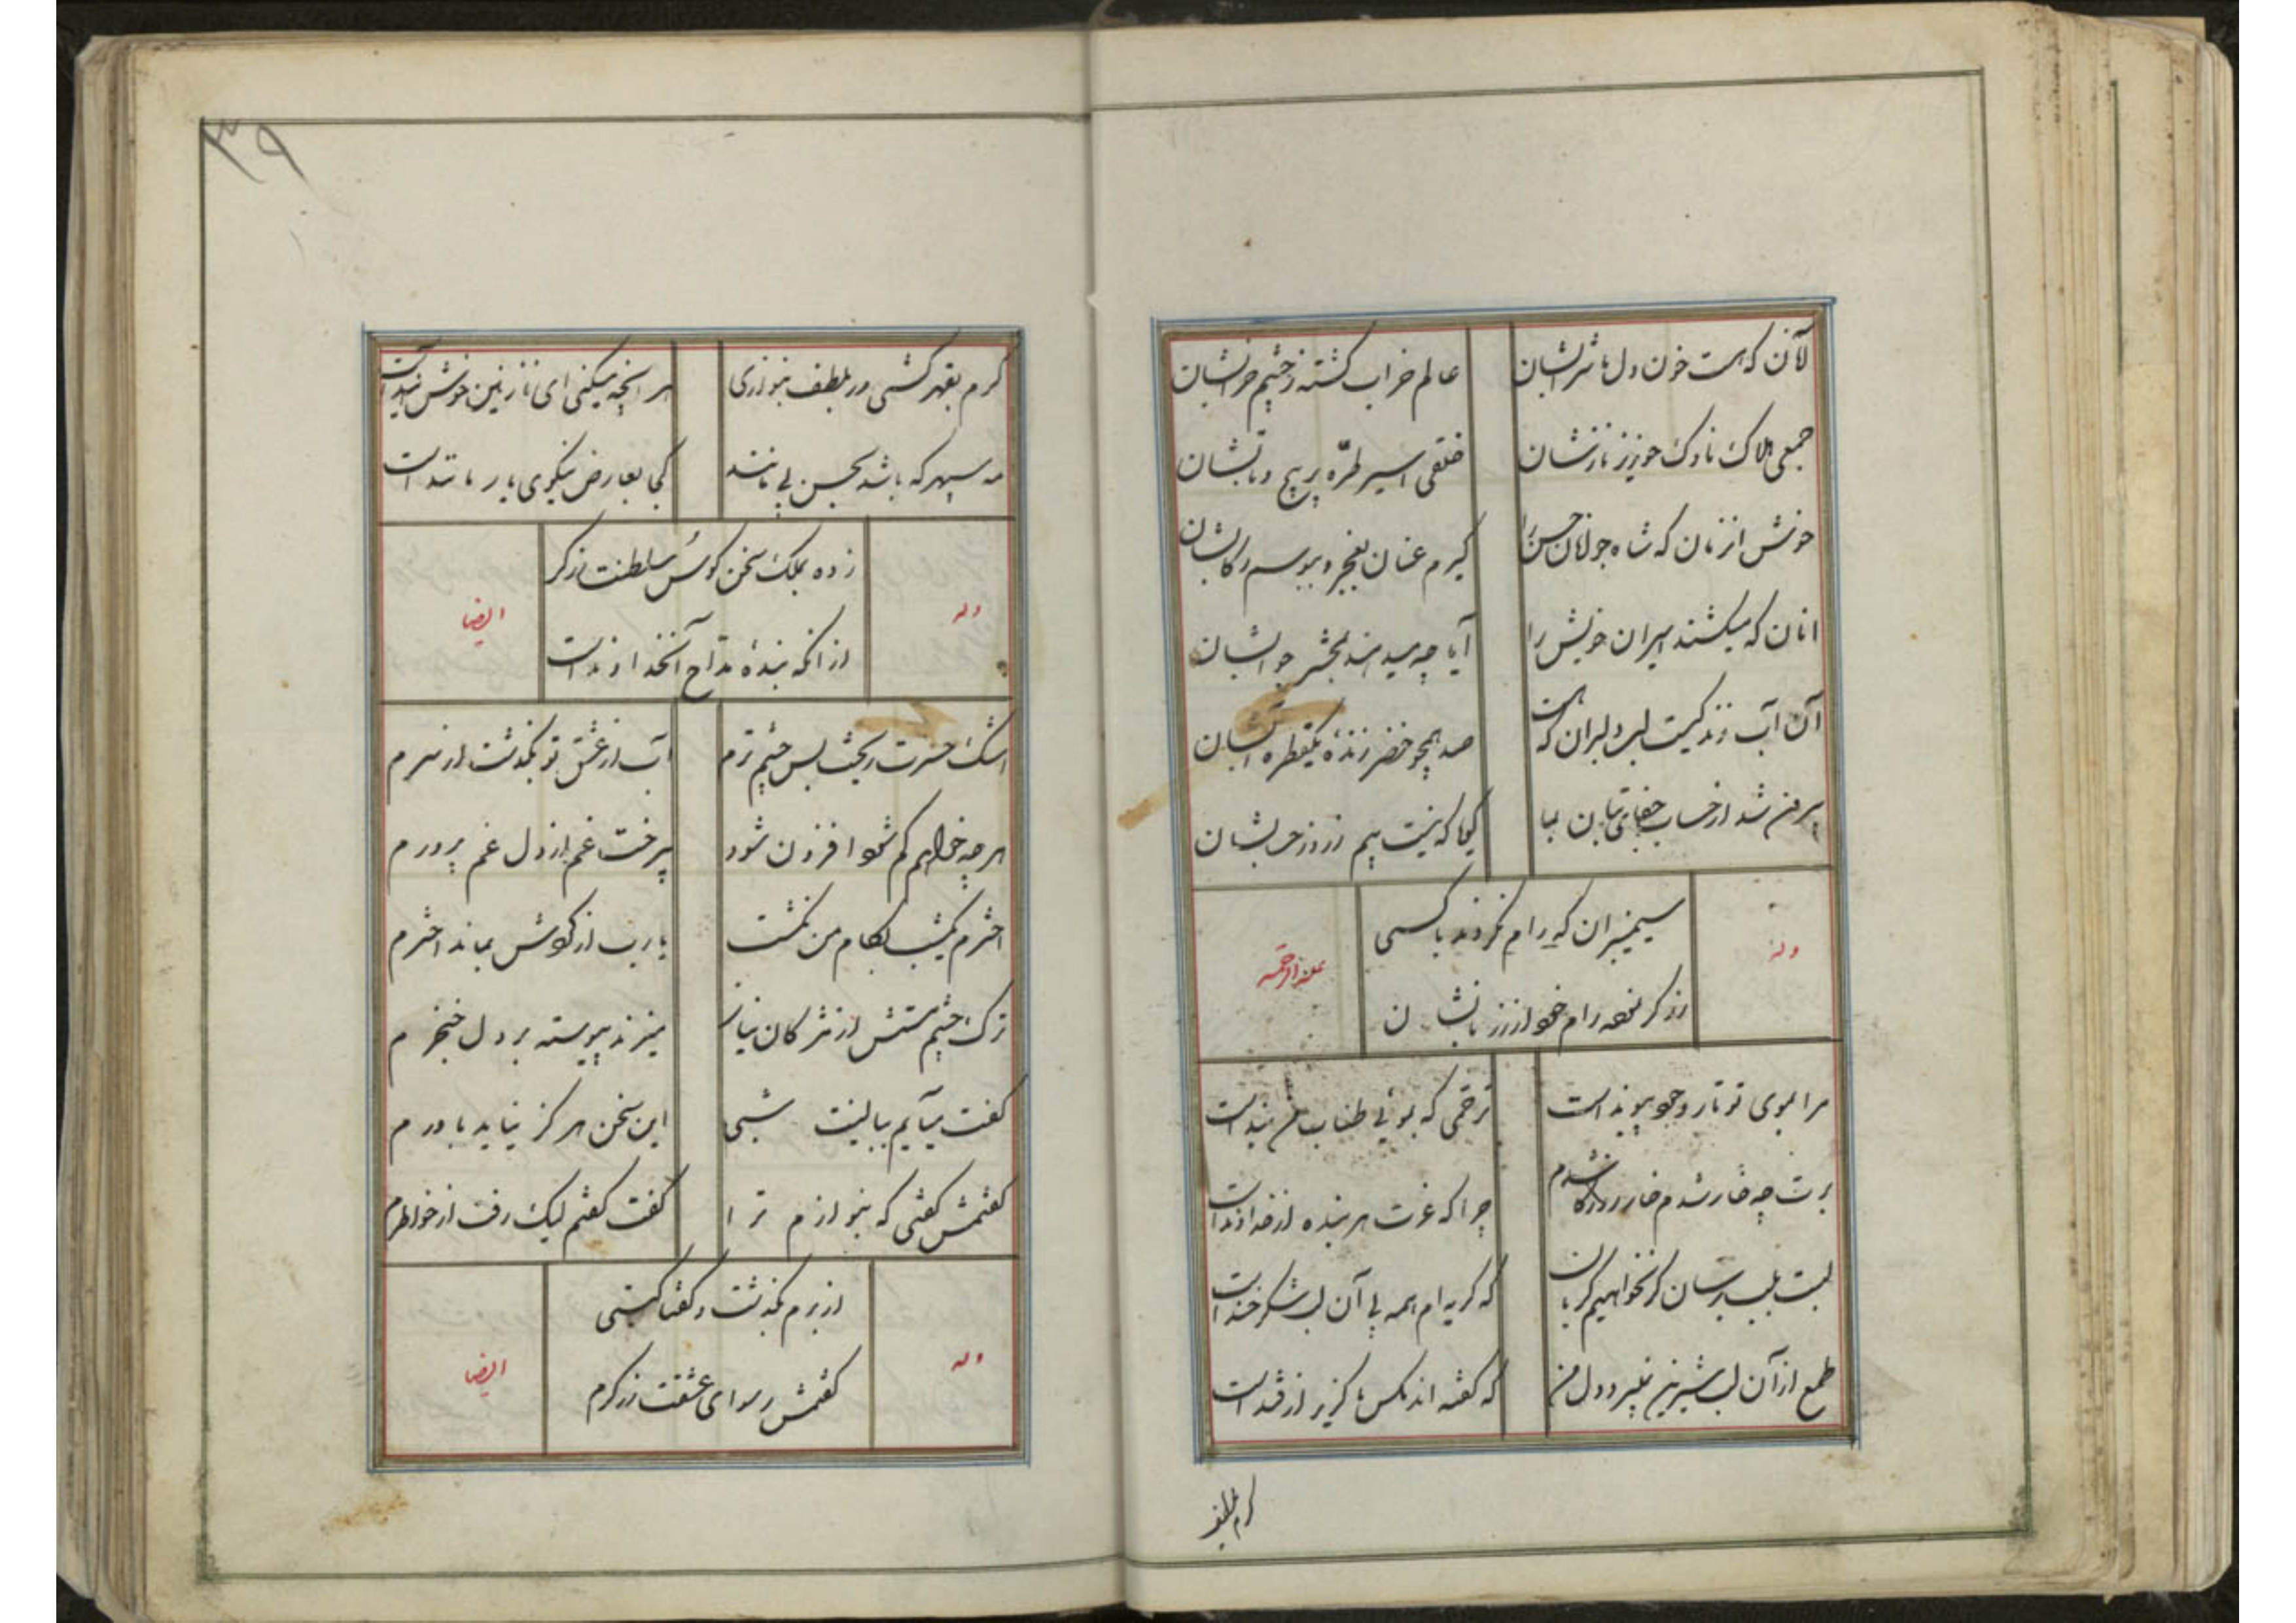 لآن که هست خون دل ما شرابشان عالم خراب گشته ز چشم خرابشان
جمعی هلاک ناوک خونریز نازشان خلقی اسیر طره پر پیچ و تابشان
خوش انزمان که شاه جولان حسن را گیرم عنان بعجز و ببوسم رکابشان
انان که میکشند اسیران خویش را آیا چه میدهند بمحشر جوابشان
آن آب زندگیست لب دلبران که هست صد همچو خضر زنده یکقطره آبشان
بیرون شد از حساب جفای بتان بما گویا که نیست بیم ز روز حسابشان
سیمبران که رام نکردند با کسی
وله علیه الرحمه
زرگر نموده رام خود از زر بانشان
مرا بموی تو تار وجود پیوند است ترحمی که بموئی طناب من بند است
برت چه خار شدم خار روزگار شدم چرا که عزت هر بنده از خداوند است
لبت بلب برسان گر نخواهیم گریان که گریه ام همه پی آن لب شکرخند است
طمع از آن لب شیرین نمیبرد دل من که گفته اند مگس ناگزیر از قند است
کرم بقهر
۳۹
کرم بقهر کشی ور بلطف بنوازی هر انچه میکنی ای نازنین خوش آیند است
مه سپهر که باشد بحسن بی مانند کی بعارض نیکوی یار مانند است
زده بملک سخن کوس سلطنت زرگر
وله ایضا
از انکه بنده مداح آنخداوند است
اشک حسرت ریخت بس چشم ترم آب از عشق تو بگذشت از سرم
هر چه خواهم کم شود افزون شود پیرخت غم از دل غم پرورم
اخترم یکشب بکام من نگشت یارب از گردش بماند اخترم
ترک چشم مستش از مژگان نیاز میزند پیوسته بر دل خنجرم
گفت میآیم ببالینت شبی این سخن هرگز نیاید باورم
گفتمش گفتی که بنوازم ترا گفت گفتم لیک رفت از خواطرم
از برم بگذشت و گفتا کیستی
وله ایضا
گفتمش رسوای عشقت زرگرم